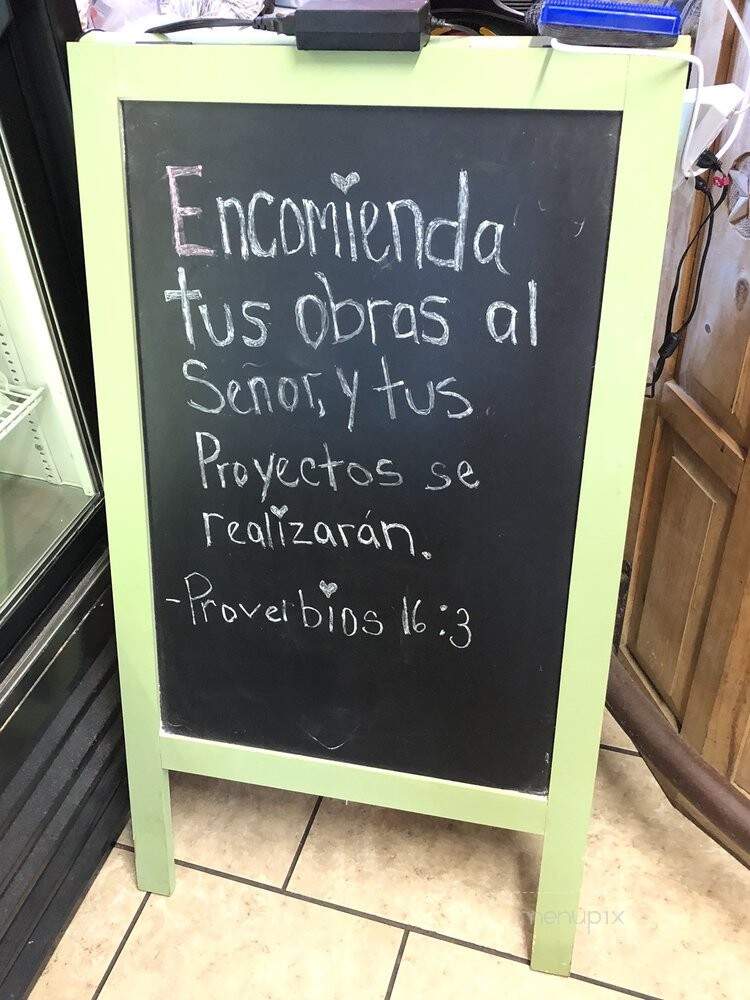 Encomienda
tus obras al
Señor, y tus
Proyectos se
realizarán.
-Proverbios 16:3
menupix